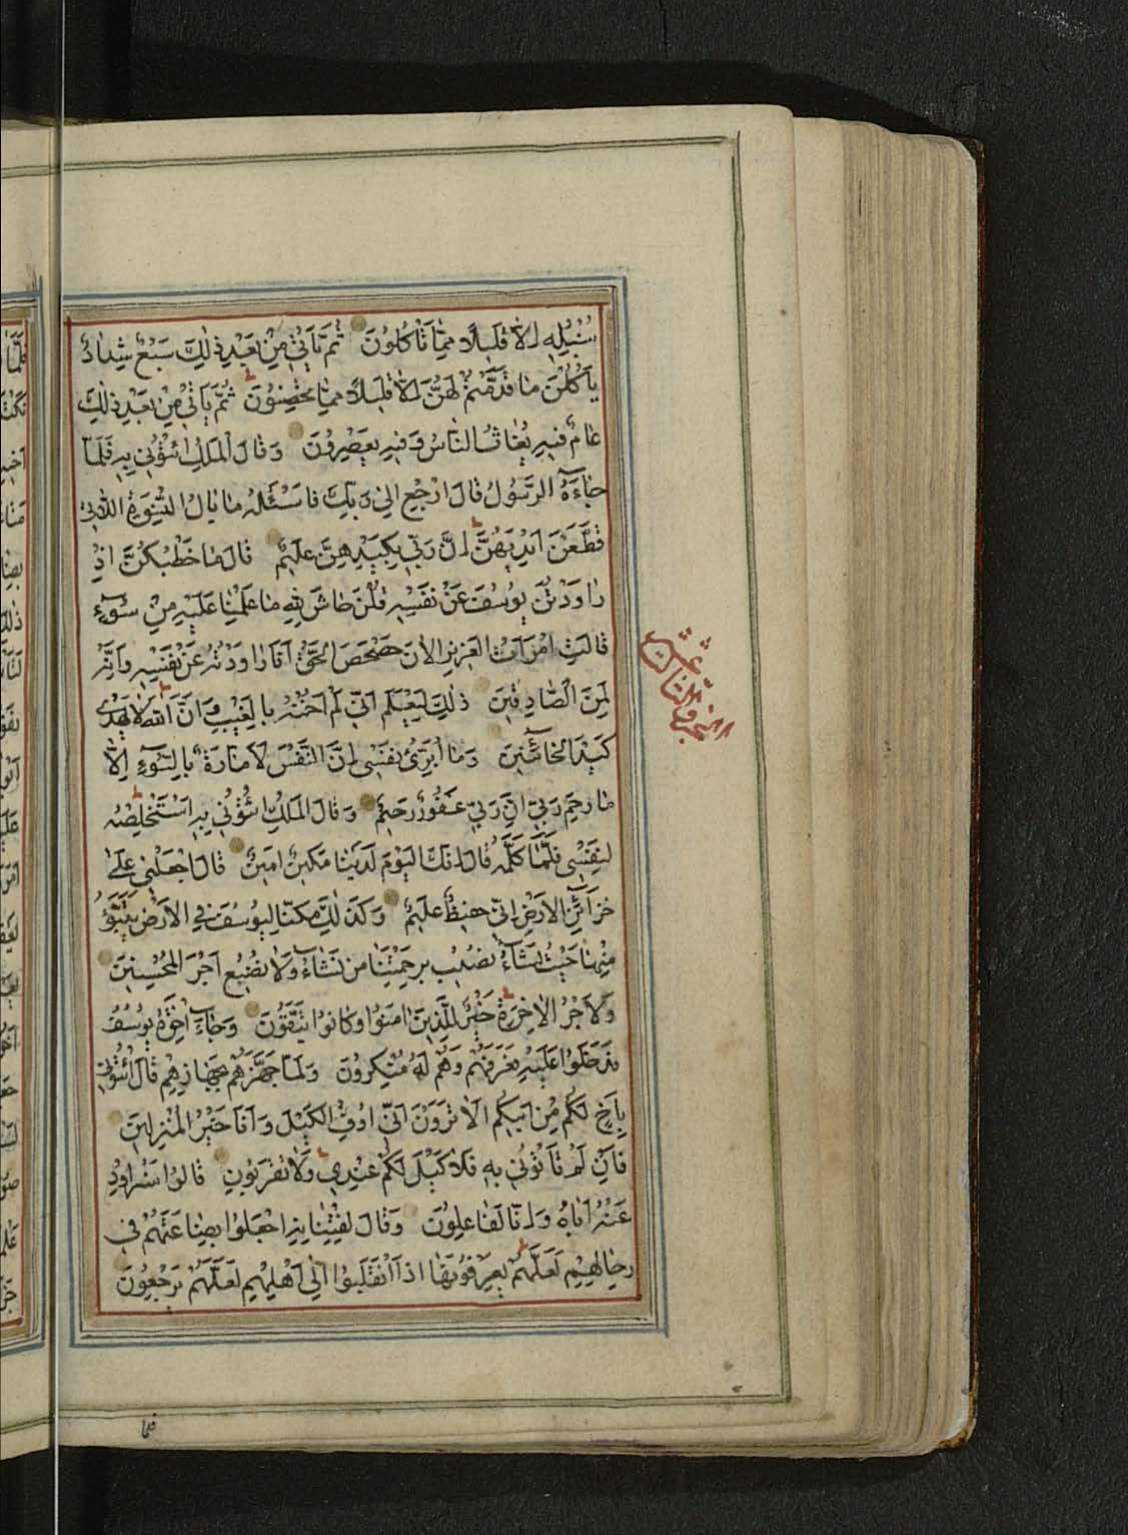 سُنْبُلِهِ اِلَّا قَلِيلًا مِمَّا تَأْكُلُونَ ثُمَّ يَأْتِي مِنْ بَعْدِ ذٰلِكَ سَبْعٌ شِدَادٌ
يَأْكُلْنَ مَا قَدَّمْتُمْ لَهُنَّ اِلَّا قَلِيلًا مِمَّا تُحْصِنُونَ ثُمَّ يَأْتِي مِنْ بَعْدِ ذٰلِكَ
عَامٌ فِيهِ يُغَاثُ النَّاسُ وَفِيهِ يَعْصِرُونَ وَقَالَ الْمَلِكُ ائْتُونِي بِهِ فَلَمَّا
جَاءَهُ الرَّسُولُ قَالَ ارْجِعْ اِلٰى رَبِّكَ فَاسْئَلْهُ مَا بَالُ النِّسْوَةِ اللَّاتِي
قَطَّعْنَ اَيْدِيَهُنَّ اِنَّ رَبِّي بِكَيْدِهِنَّ عَلِيمٌ قَالَ مَا خَطْبُكُنَّ اِذْ
رَاوَدْتُنَّ يُوسُفَ عَنْ نَفْسِهِ قُلْنَ حَاشَ لِلّٰهِ مَا عَلِمْنَا عَلَيْهِ مِنْ سُوءٍ
قَالَتِ امْرَاَتُ الْعَزِيزِ الْاٰنَ حَصْحَصَ الْحَقُّ اَنَا رَاوَدْتُهُ عَنْ نَفْسِهِ وَاِنَّهُ
لَمِنَ الصَّادِقِينَ ذٰلِكَ لِيَعْلَمَ اَنِّي لَمْ اَخُنْهُ بِالْغَيْبِ وَاَنَّ اللّٰهَ لَا يَهْدِي
كَيْدَ الْخَائِنِينَ وَمَا اُبَرِّئُ نَفْسِي اِنَّ النَّفْسَ لَاَمَّارَةٌ بِالسُّوءِ اِلَّا
مَا رَحِمَ رَبِّي اِنَّ رَبِّي غَفُورٌ رَحِيمٌ وَقَالَ الْمَلِكُ ائْتُونِي بِهِ اَسْتَخْلِصْهُ
لِنَفْسِي فَلَمَّا كَلَّمَهُ قَالَ اِنَّكَ الْيَوْمَ لَدَيْنَا مَكِينٌ اَمِينٌ قَالَ اجْعَلْنِي عَلٰى
خَزَائِنِ الْاَرْضِ اِنِّي حَفِيظٌ عَلِيمٌ وَكَذٰلِكَ مَكَّنَّا لِيُوسُفَ فِي الْاَرْضِ يَتَبَوَّءُ
مِنْهَا حَيْثُ يَشَاءُ نُصِيبُ بِرَحْمَتِنَا مَنْ نَشَاءُ وَلَا نُضِيعُ اَجْرَ الْمُحْسِنِينَ
وَلَاَجْرُ الْاٰخِرَةِ خَيْرٌ لِلَّذِينَ اٰمَنُوا وَكَانُوا يَتَّقُونَ وَجَاءَ اِخْوَةُ يُوسُفَ
فَدَخَلُوا عَلَيْهِ فَعَرَفَهُمْ وَهُمْ لَهُ مُنْكِرُونَ وَلَمَّا جَهَّزَهُمْ بِجَهَازِهِمْ قَالَ ائْتُونِي
بِاَخٍ لَكُمْ مِنْ اَبِيكُمْ اَلَا تَرَوْنَ اَنِّي اُوفِي الْكَيْلَ وَاَنَا خَيْرُ الْمُنْزِلِينَ
فَاِنْ لَمْ تَأْتُونِي بِهِ فَلَا كَيْلَ لَكُمْ عِنْدِي وَلَا تَقْرَبُونِ قَالُوا سَنُرَاوِدُ
عَنْهُ اَبَاهُ وَاِنَّا لَفَاعِلُونَ وَقَالَ لِفِتْيَانِهِ اجْعَلُوا بِضَاعَتَهُمْ فِي
رِحَالِهِمْ لَعَلَّهُمْ يَعْرِفُونَهَا اِذَا انْقَلَبُوا اِلٰى اَهْلِهِمْ لَعَلَّهُمْ يَرْجِعُونَ
الجزء الثالث عشر
فلما